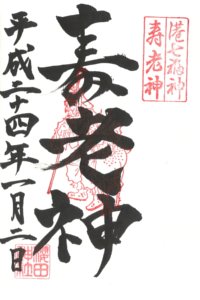 港七福神
寿老神
寿老神
平成二十四年一月二日
櫻田神社